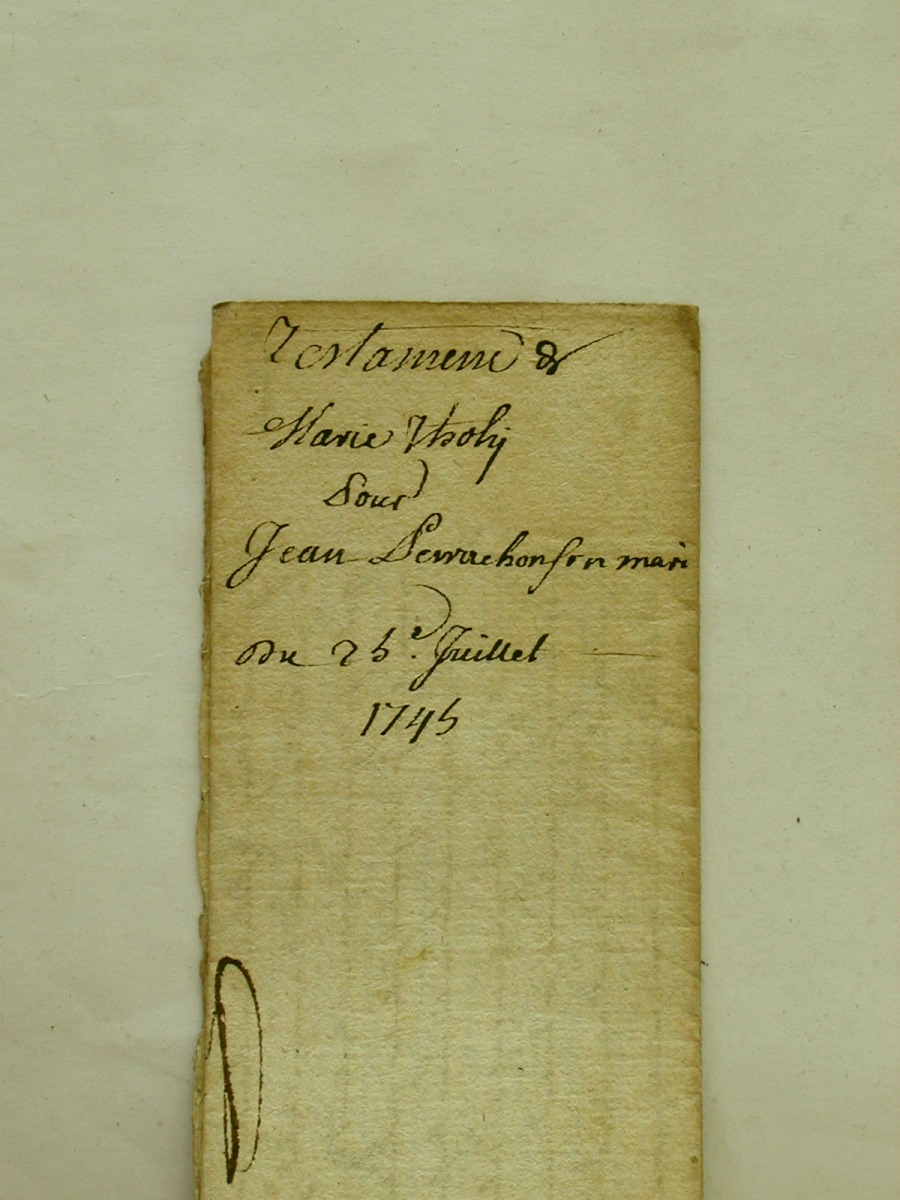 Testament de
Marie Tholy
Pour
Jean Perrachon son mari
Du 25e. Juillet
1745